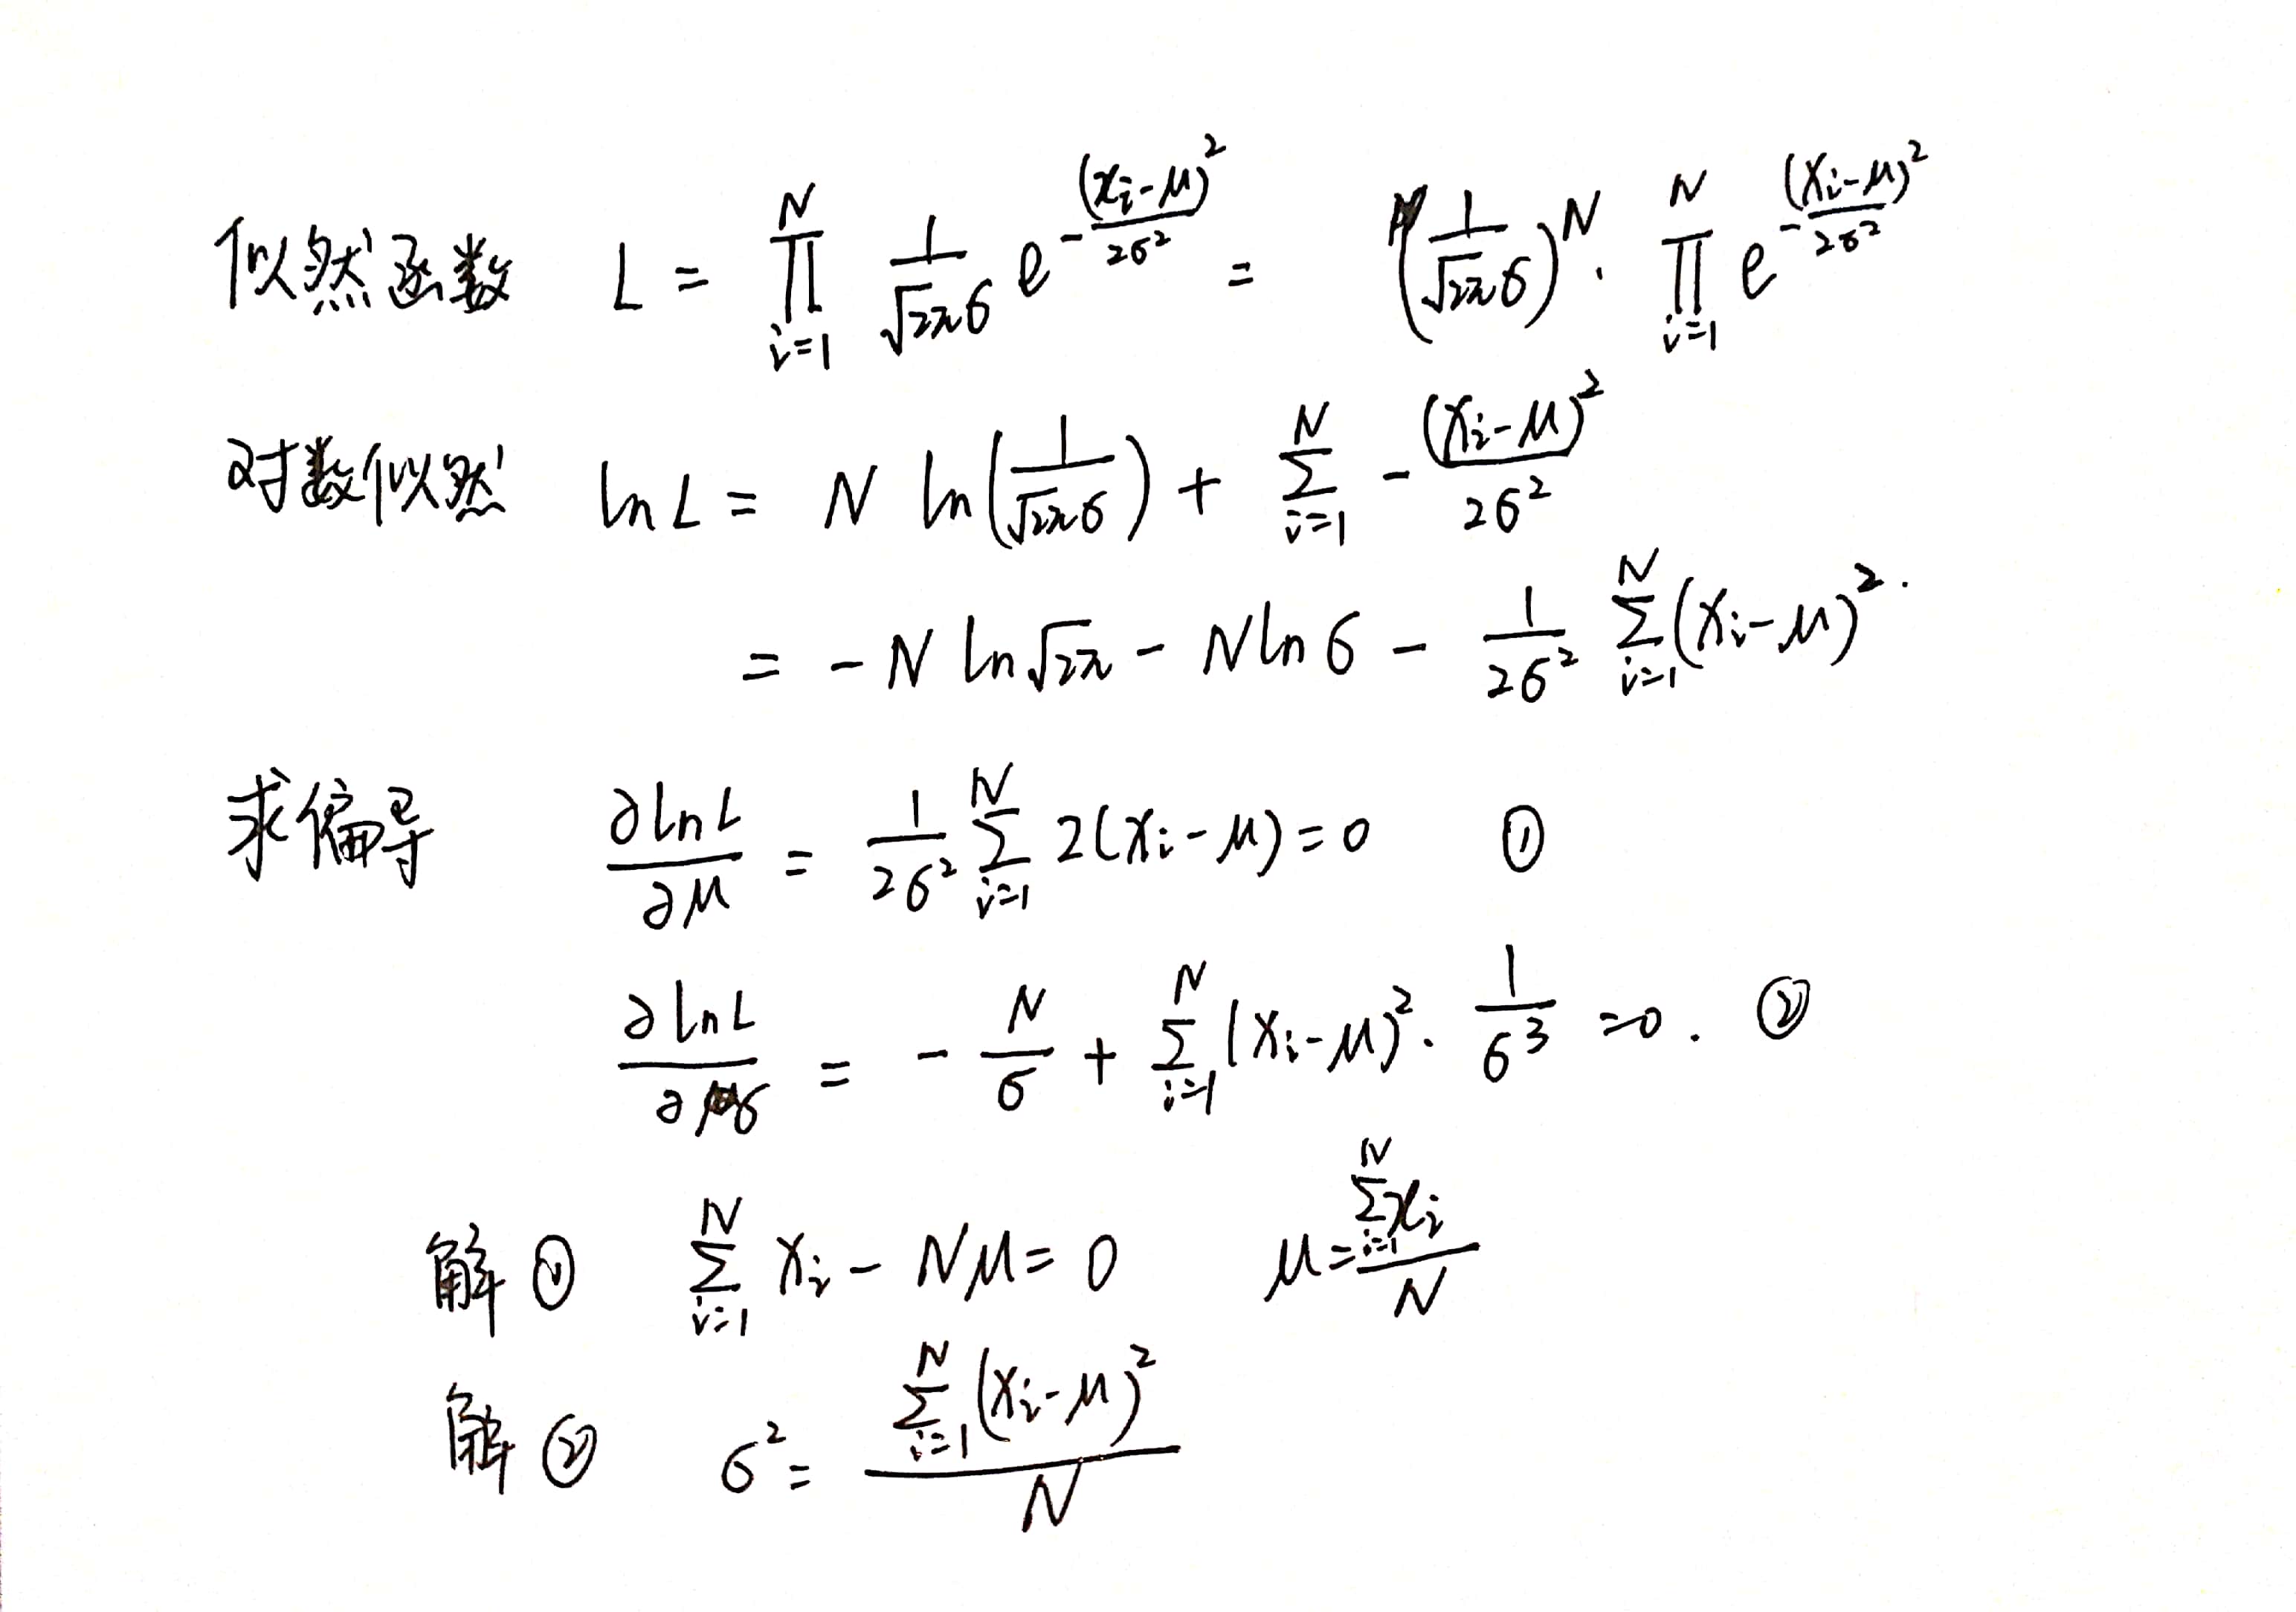 似然函数 L = ∏_{i=1}^{N} \frac{1}{\sqrt{2π}σ} e^{-\frac{(x_i-μ)^2}{2σ^2}} = (\frac{1}{\sqrt{2π}σ})^N · ∏_{i=1}^{N} e^{-\frac{(x_i-μ)^2}{2σ^2}}
对数似然 ln L = N ln(\frac{1}{\sqrt{2π}σ}) + ∑_{i=1}^{N} -\frac{(x_i-μ)^2}{2σ^2}
= -N ln\sqrt{2π} - N ln σ - \frac{1}{2σ^2} ∑_{i=1}^{N} (x_i-μ)^2.
求偏导 \frac{∂ln L}{∂μ} = \frac{1}{2σ^2} ∑_{i=1}^{N} 2(x_i-μ) = 0 ①
\frac{∂ln L}{∂σ} = -\frac{N}{σ} + ∑_{i=1}^{N} (x_i-μ)^2 · \frac{1}{σ^3} = 0. ②
解① ∑_{i=1}^{N} x_i - Nμ = 0 μ = \frac{∑_{i=1}^{N} x_i}{N}
解② σ^2 = \frac{∑_{i=1}^{N} (x_i-μ)^2}{N}